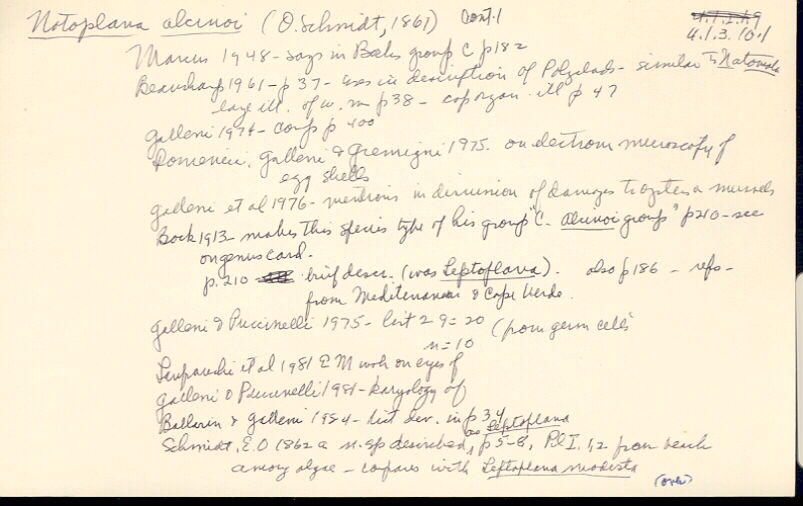 Notoplana alcinoi (O. Schmidt, 1861) Cont. 1
4.1.3.10.1
Marcus 1948 - says in Bock's group C p182
Beauchamp 1961 - p 37 - uses in description of Polyclads - similar to Notoplana
large ill. of w. m p38 - cop organ ill p 47
Galleni 1974 - comp p 400
Domenici, Galleni & Gremigni 1975. on electron microscopy of
egg shells
Galleni et al 1976 - mentions in discussion of damages to oysters & mussels
Bock 1913 - makes this species type of his group "C - alcinoi group" p210 - see
on genus card.
p. 210 brief descr. (was Leptoplana). also p186 - refs -
from Mediterranean & Cape Verde.
Galleni & Puccinelli 1975 - list 2n = 20 (from germ cells
n = 10
Lanfranchi et al 1981 EM work on eyes of
Galleni & Puccinelli 1981 - karyology of
Ballarin & Galleni 1984 - list dev. in p 34
as Leptoplana
Schmidt, E.O 1862 a n. sp described, p5-8, Pl I. 1,2 from beach
among algae - compares with Leptoplana modesta
(over)